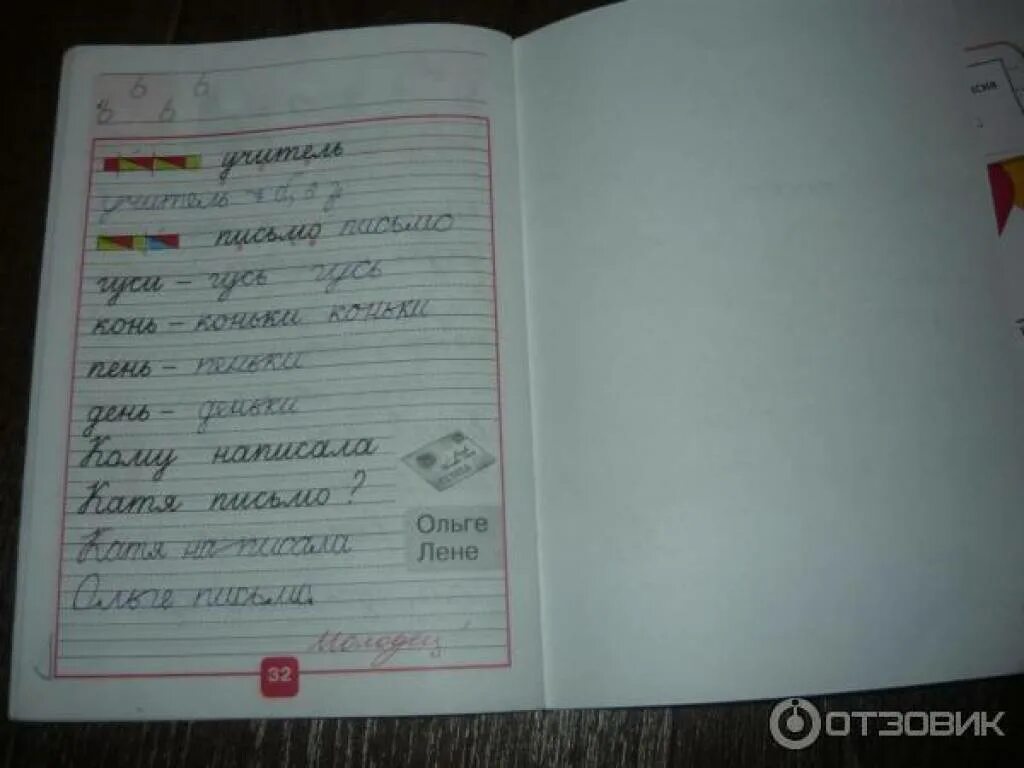 ь ь
ь ь
учитель
учитель
письмо письмо
гуси – гусь гусь
конь – коньки коньки
пень – пеньки
день – деньки
Кому написала
Катя письмо?
Ольге
Лене
Катя написала
Ольге письмо.
Молодец!
32
ОТЗОВИК